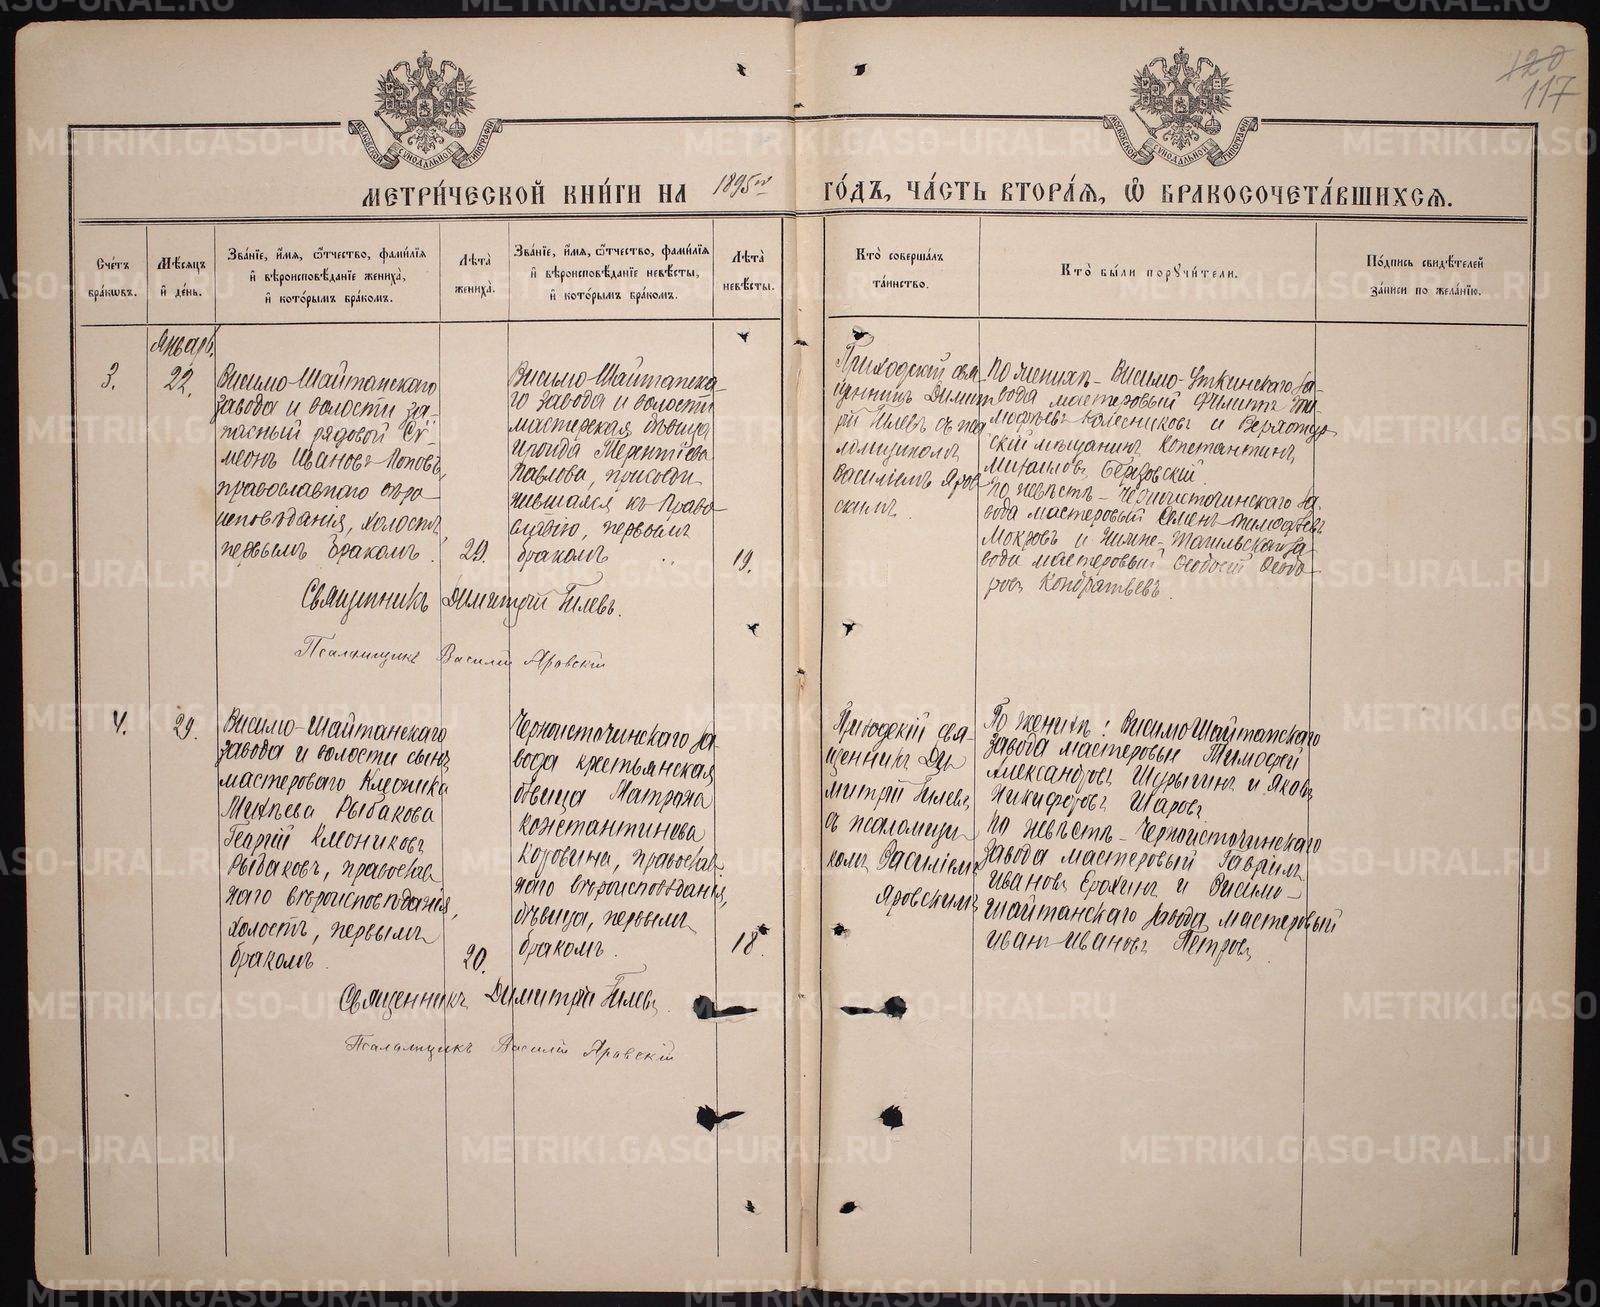 120
117
МОСКОВСКОЙ СѴНОДАЛЬНОЙ ТИПОГРАФІИ
МОСКОВСКОЙ СѴНОДАЛЬНОЙ ТИПОГРАФІИ
МЕТРИ́ЧЕСКОЙ КНИ́ГИ НА 1895й ГО́ДЪ, ЧА́СТЬ ВТОРА́Я, Ѽ БРАКОСОЧЕТА́ВШИХСЯ.
Сче́тъ бра́кωвъ.
Мѣ́сяцъ и҆ де́нь.
Зва́нїе, и҆́мя, ѻ҆́тчество, фами́лїя
и҆ вѣроисповѣ́данїе жениха̀,
и҆ кото́рымъ бра́комъ.
Лѣ́та жениха̀.
Зва́нїе, и҆́мя, ѻ҆́тчество, фами́лїя
и҆ вѣроисповѣ́данїе невѣ́сты,
и҆ кото́рымъ бра́комъ.
Лѣ́та невѣ́сты.
Кто̀ соверша́лъ
та́инство.
Кто̀ бы́ли порꙋчи́тели.
По́дпись свидѣ́телей
за́писи по жела́нїю.
Январь.
3.
22.
Висимо-Шайтанскаго
завода и волости за-
пасный рядовой Си-
меонъ Ивановъ Поповъ,
православнаго вѣро-
исповѣданія, холостъ,
первымъ бракомъ.
29.
Висимо-Шайтанска-
го завода и волости
мастерская дѣвица
Терентіева
Павлова, присоеди-
нившаяся къ Право-
славію, первымъ
бракомъ
19.
Приходскій свя-
щенникъ Димит-
рій Гилевъ съ пса-
ломщикомъ
Василіемъ Яров-
скимъ.
По женихѣ - Висимо-Уткинскаго за-
вода мастеровый Филиппъ Ти-
мофѣевъ Колесниковъ и Верхотур-
скій мѣщанинъ Константинъ
Михаиловъ
По невѣстѣ - Черноисточинскаго за-
вода мастеровый Семенъ Тимофѣевъ
Мокровъ и Нижне-Тагильскаго за-
вода мастеровый Ѳеодосій Ѳеодо-
ровъ Кондратьевъ.
Священникъ Димитрій Гилевъ.
Псаломщикъ Василій Яровскій
4.
29.
Висимо-Шайтанскаго
завода и волости сынъ
мастероваго Клеоника
Михѣева Рыбакова
Георгій Клеониковъ
Рыбаковъ, православ
наго вѣроисповѣданія,
холостъ, первымъ
бракомъ.
20.
Черноисточинскаго за-
вода крестьянская
дѣвица Матрона
Константинова
Коровина, православ
наго вѣроисповѣданія,
дѣвица, первымъ
бракомъ.
18.
Приходскій свя-
щенникъ Ди
митрій Гилевъ
съ псаломщи
комъ Василіемъ
Яровскимъ
По женихѣ: Висимо Шайтанскаго
завода мастеровые Тимофей
Александровъ Шурыгинъ и Яковъ
Никифоровъ Шаровъ
По невѣстѣ - Черноисточинскаго
завода мастеровый Гавріилъ
Ивановъ Ерохинъ и Висимо-
Шайтанскаго завода мастеровый
Иванъ Ивановъ Петровъ
Священникъ Димитрій Гилевъ.
Псаломщикъ Василій Яровскій
METRIKI.GASO-URAL.RU